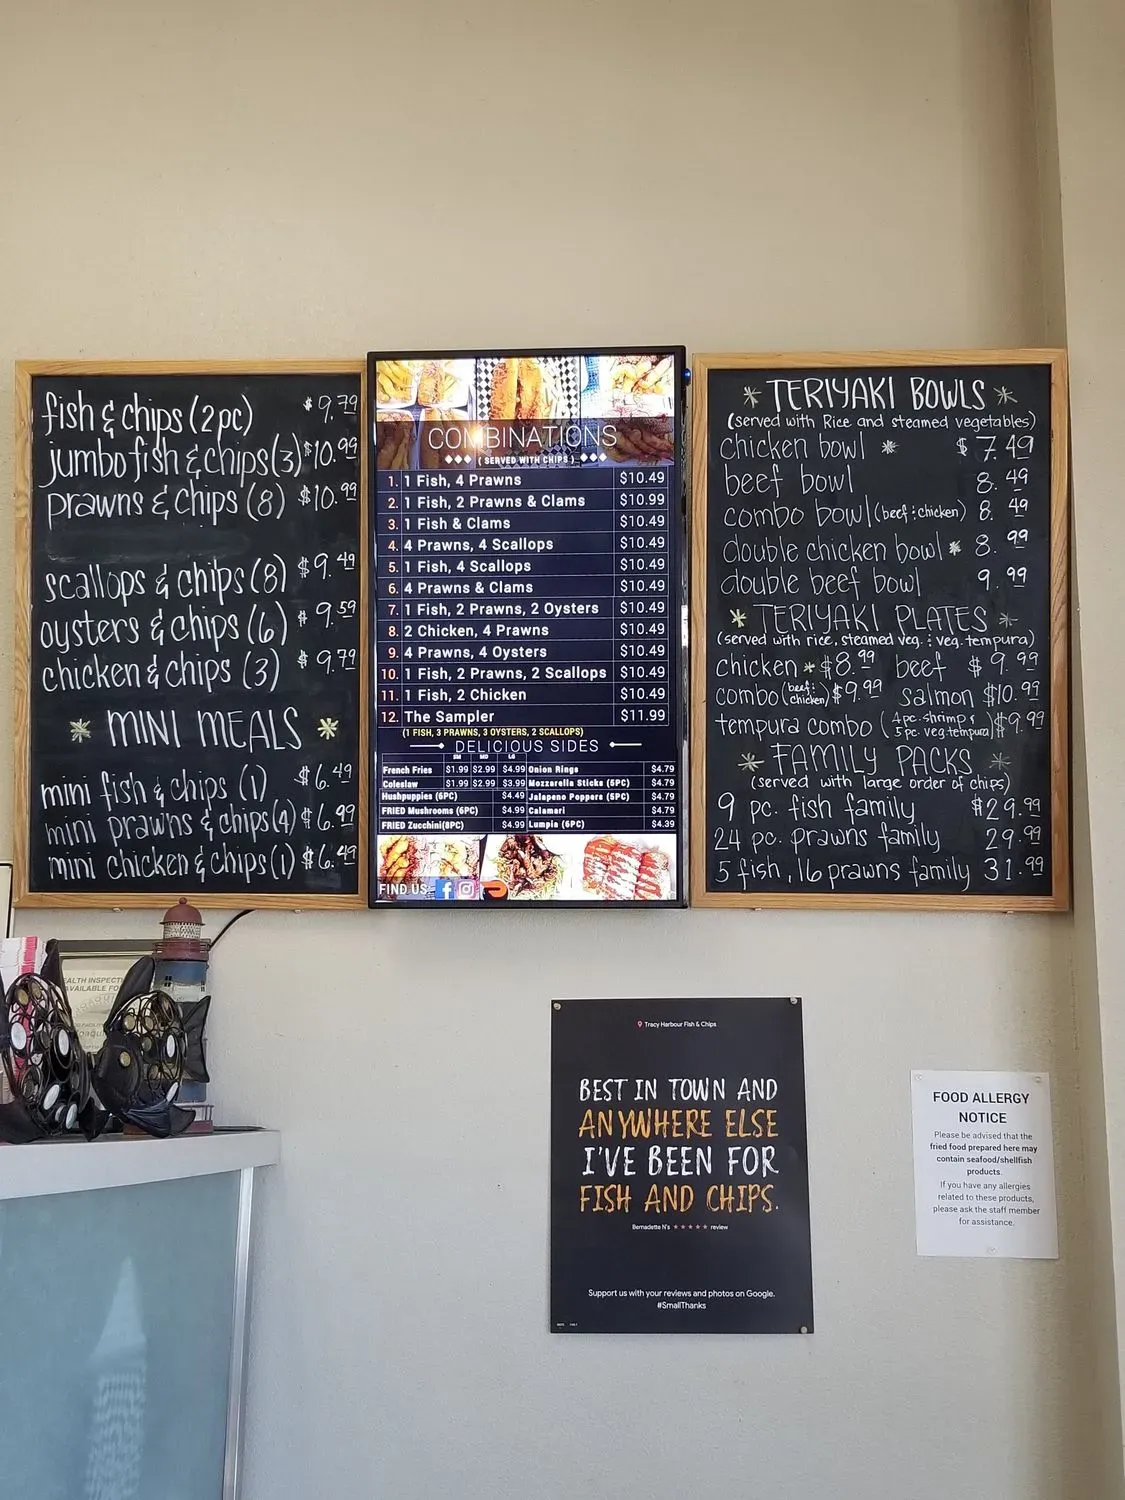 fish & chips (2pc) $9.79
jumbo fish & chips (3) $10.99
prawns & chips (8) $10.99
scallops & chips (8) $9.49
oysters & chips (6) $9.59
chicken & chips (3) $9.79
MINI MEALS
mini fish & chips (1) $6.49
mini prawns & chips (4) $6.99
mini chicken & chips (1) $6.49
COMBINATIONS
( SERVED WITH CHIPS )
1. 1 Fish, 4 Prawns $10.49
2. 1 Fish, 2 Prawns & Clams $10.99
3. 1 Fish & Clams $10.49
4. 4 Prawns, 4 Scallops $10.49
5. 1 Fish, 4 Scallops $10.49
6. 4 Prawns & Clams $10.49
7. 1 Fish, 2 Prawns, 2 Oysters $10.49
8. 2 Chicken, 4 Prawns $10.49
9. 4 Prawns, 4 Oysters $10.49
10. 1 Fish, 2 Prawns, 2 Scallops $10.49
11. 1 Fish, 2 Chicken $10.49
12. The Sampler $11.99
(1 FISH, 3 PRAWNS, 3 OYSTERS, 2 SCALLOPS)
DELICIOUS SIDES
SM MD LG
French Fries $1.99 $2.99 $4.99 Onion Rings $4.79
Coleslaw $1.99 $2.99 $3.99 Mozzarella Sticks (5PC) $4.79
Hushpuppies (6PC) $4.49 Jalapeno Poppers (5PC) $4.79
FRIED Mushrooms (6PC) $4.99 Calamari $4.79
FRIED Zucchini(8PC) $4.99 Lumpia (6PC) $4.39
FIND US
TERIYAKI BOWLS
(served with Rice and steamed vegetables)
chicken bowl * $7.49
beef bowl 8.49
combo bowl (beef & chicken) 8.49
double chicken bowl * 8.99
double beef bowl 9.99
TERIYAKI PLATES
(served with rice, steamed veg. & veg. tempura)
chicken * $8.99 beef $9.99
combo (beef & chicken) $9.99 salmon $10.99
tempura combo (4pc. shrimp & 5pc. veg. tempura) $9.99
FAMILY PACKS
(served with large order of chips)
9 pc. fish family $29.99
24 pc. prawns family 29.99
5 fish, 16 prawns family 31.99
Tracy Harbour Fish & Chips
BEST IN TOWN AND
ANYWHERE ELSE
I'VE BEEN FOR
FISH AND CHIPS.
Bernadette N's ★★★★★ review
Support us with your reviews and photos on Google.
#SmallThanks
FOOD ALLERGY
NOTICE
Please be advised that the
fried food prepared here may
contain seafood/shellfish
products.
If you have any allergies
related to these products,
please ask the staff member
for assistance.